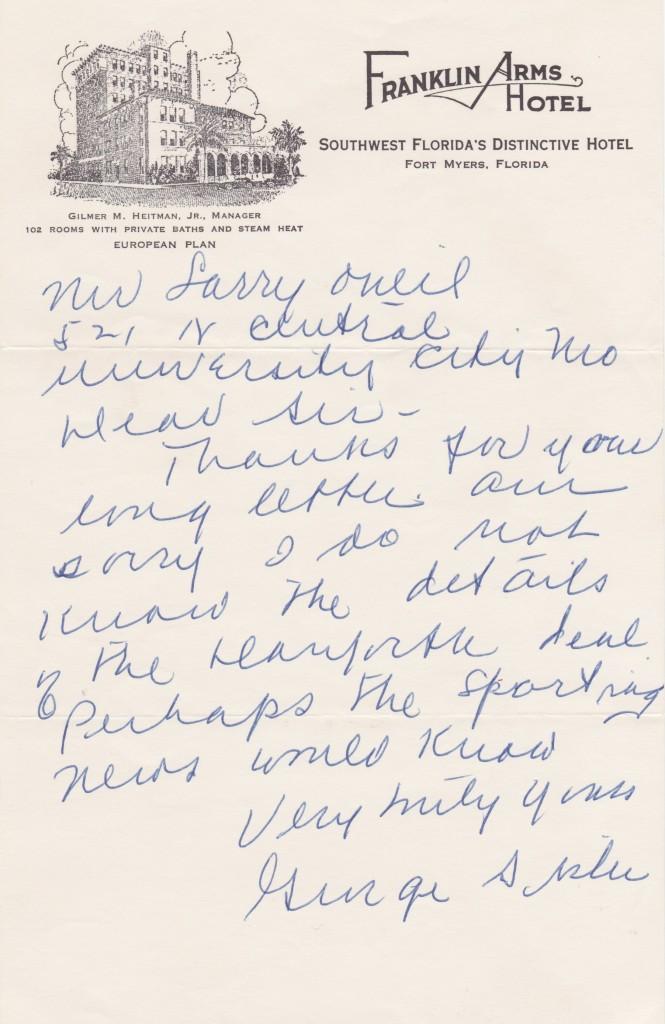 FRANKLIN ARMS
HOTEL
SOUTHWEST FLORIDA'S DISTINCTIVE HOTEL
FORT MYERS, FLORIDA
GILMER M. HEITMAN, JR., MANAGER
102 ROOMS WITH PRIVATE BATHS AND STEAM HEAT
EUROPEAN PLAN
Mr Larry Oneil
521 N Central
University City Mo
Dear Sir-
Thanks for your
long letter. Am
sorry I do not
know the details
of the Danforth deal
Perhaps the Sporting
News would know
Very truly yours
George Sisler